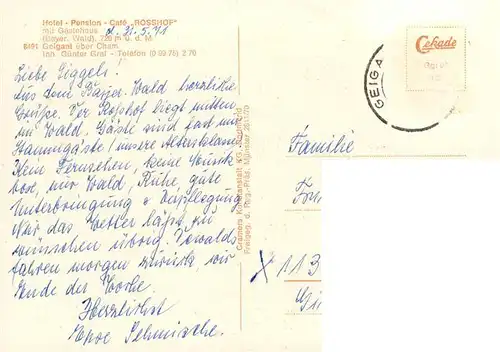 Hotel - Pension - Café „ROSSHOF"
mit Gästehaus
d. 21.5.71
(Bayer. Wald), 720 m ü. d. M.
8491 Geigant über Cham
Inh. Günter Graf - Telefon (0 99 75) 2 70
Liebe Siggels!
Aus dem Bayr. Wald herzliche
Grüße. Der Roßhof liegt mitten
im Wald. Gäste sind fast nur
Stammgäste / unsere Altersklasse
Kein Fernsehen, keine Musik
box, nur Wald, Ruhe, gute
Unterbringung u. Verpflegung
Nur das Wetter läßt zu
wünschen übrig. Oswalds
fahren morgen zurück, wir
Ende der Woche.
Herzlichst
Schmische.
Cramers Kunstanstalt KG, Dortmund
Freigeg. d. Reg.-Präs. Münster
Cekade
GEIGA
Familie
X 113